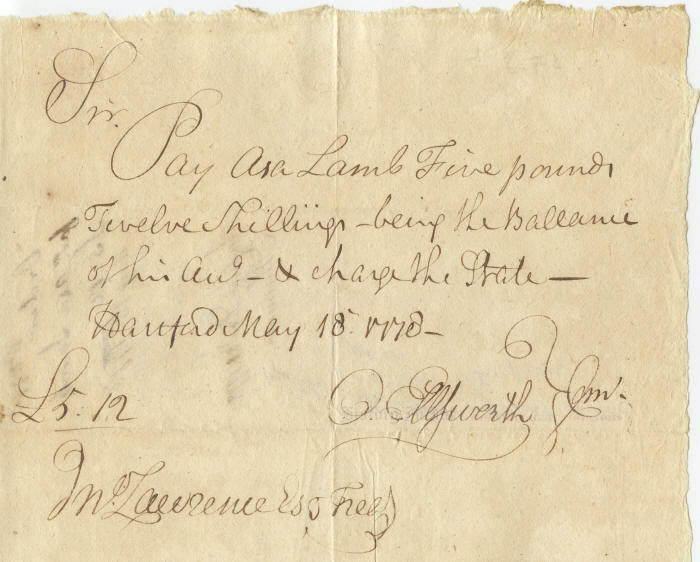 Sir.
Pay Asa Lamb Five pounds
Twelve Shillings - being the Ballance
of his Acc.t - & charge the State —
Hartford May 18th 1778 -
£5. 12
O Ellsworth } Com.
Jno Lawrence Esq Treas